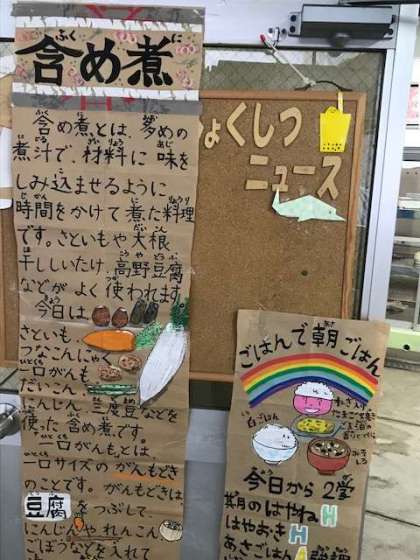 含め煮
含め煮とは、多めの
煮汁で、材料に味を
しみ込ませるように
時間をかけて煮た料理
です。さといもや大根
干ししいたけ、高野豆腐
などがよく使われます
今日は、
さといも、
つなこんにゃく
一口がんも
だいこん、
にんじん、三度豆などを
使った含め煮です。
一口がんもとは、
一口サイズのがんもどき
のことです。がんもどきは
豆腐をつぶして、
にんじんやれんこん
ごぼうなどを入れて
ょくしつ
ニュース
ごはんで朝ごはん
白ごはん
みそしる
今日から2学
期のはやね
はやおき
あさごはん